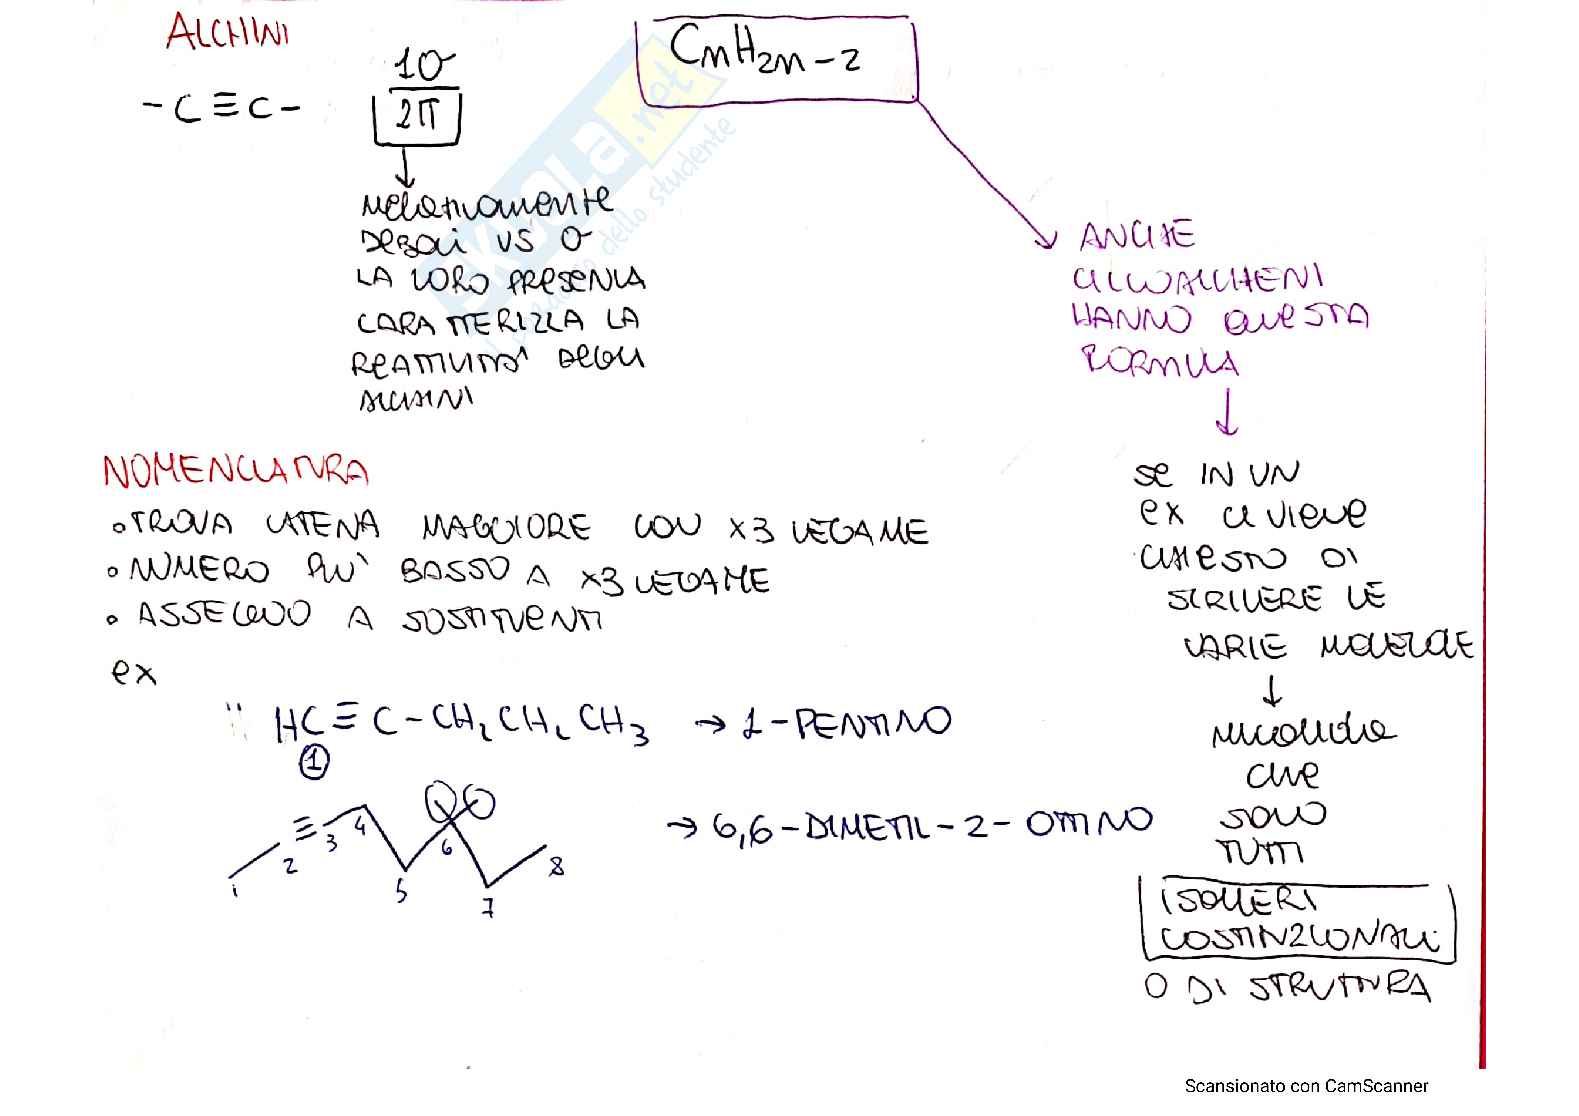 ALCHINI
-C≡C-
1σ
2π
CnH2n-2
RELATIVAMENTE
DEBOLI VS σ
LA LORO PRESENZA
CARATTERIZZA LA
REATTIVITÀ DEGLI
ALCHINI
ANCHE
CICLOALCHENI
HANNO QUESTA
FORMULA
SE IN UN
EX CI VIENE
CHIESTO DI
SCRIVERE LE
VARIE MOLECOLE
RICORDA
CHE
SONO
TUTTI
ISOMERI
COSTITUZIONALI
O DI STRUTTURA
NOMENCLATURA
• TROVA CATENA MAGGIORE CON x3 LEGAME
• NUMERO PIÙ BASSO A x3 LEGAME
• ASSEGNO A SOSTITUENTI
ex
" HC≡C-CH2CH2CH3 → 1-PENTINO
1
1 2 3 4 5 6 7 8
→ 6,6-DIMETIL-2-OTTINO
Skuola.net
dello studente
Scansionato con CamScanner